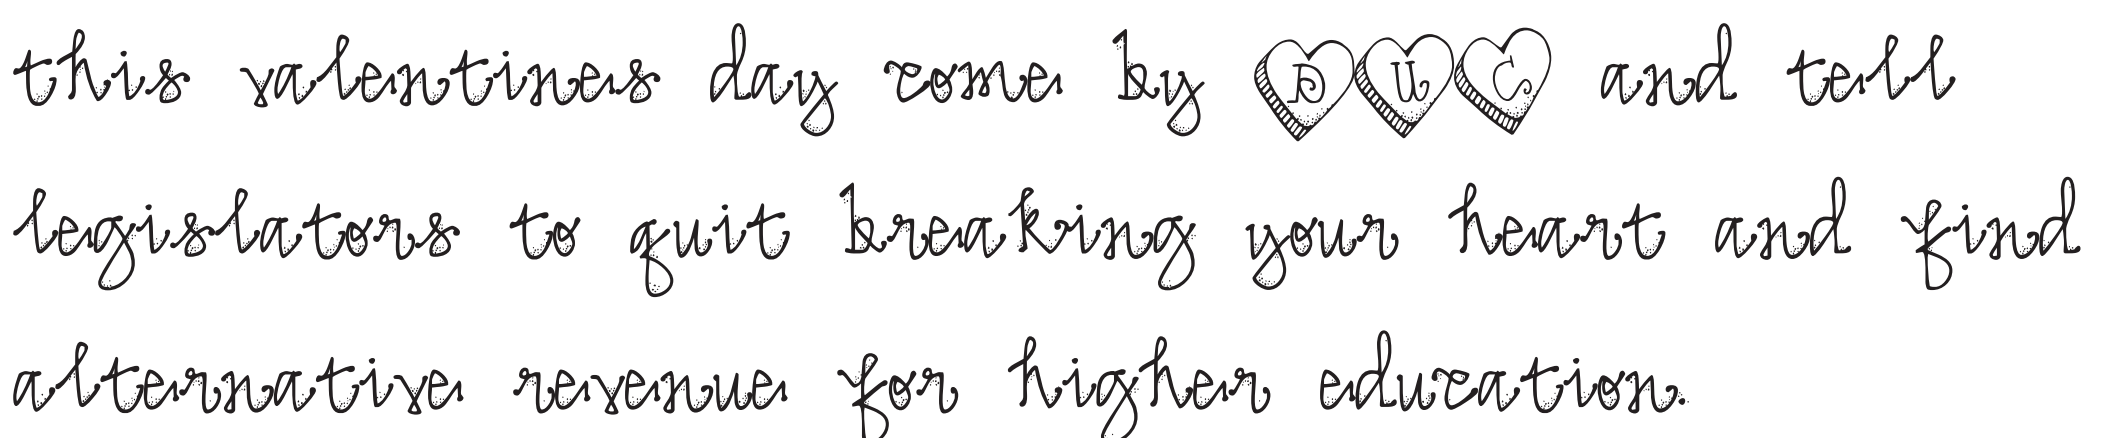 this valentines day come by DUC and tell
legislators to quit breaking your heart and find
alternative revenue for higher education.